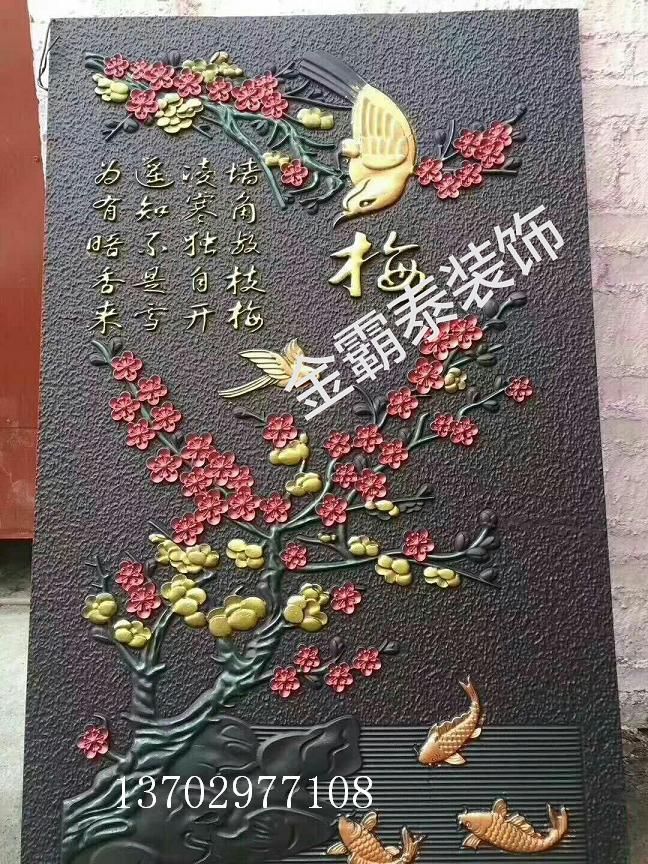 墙角数枝梅
凌寒独自开
遥知不是雪
为有暗香来
梅
金霸泰装饰
13702977108